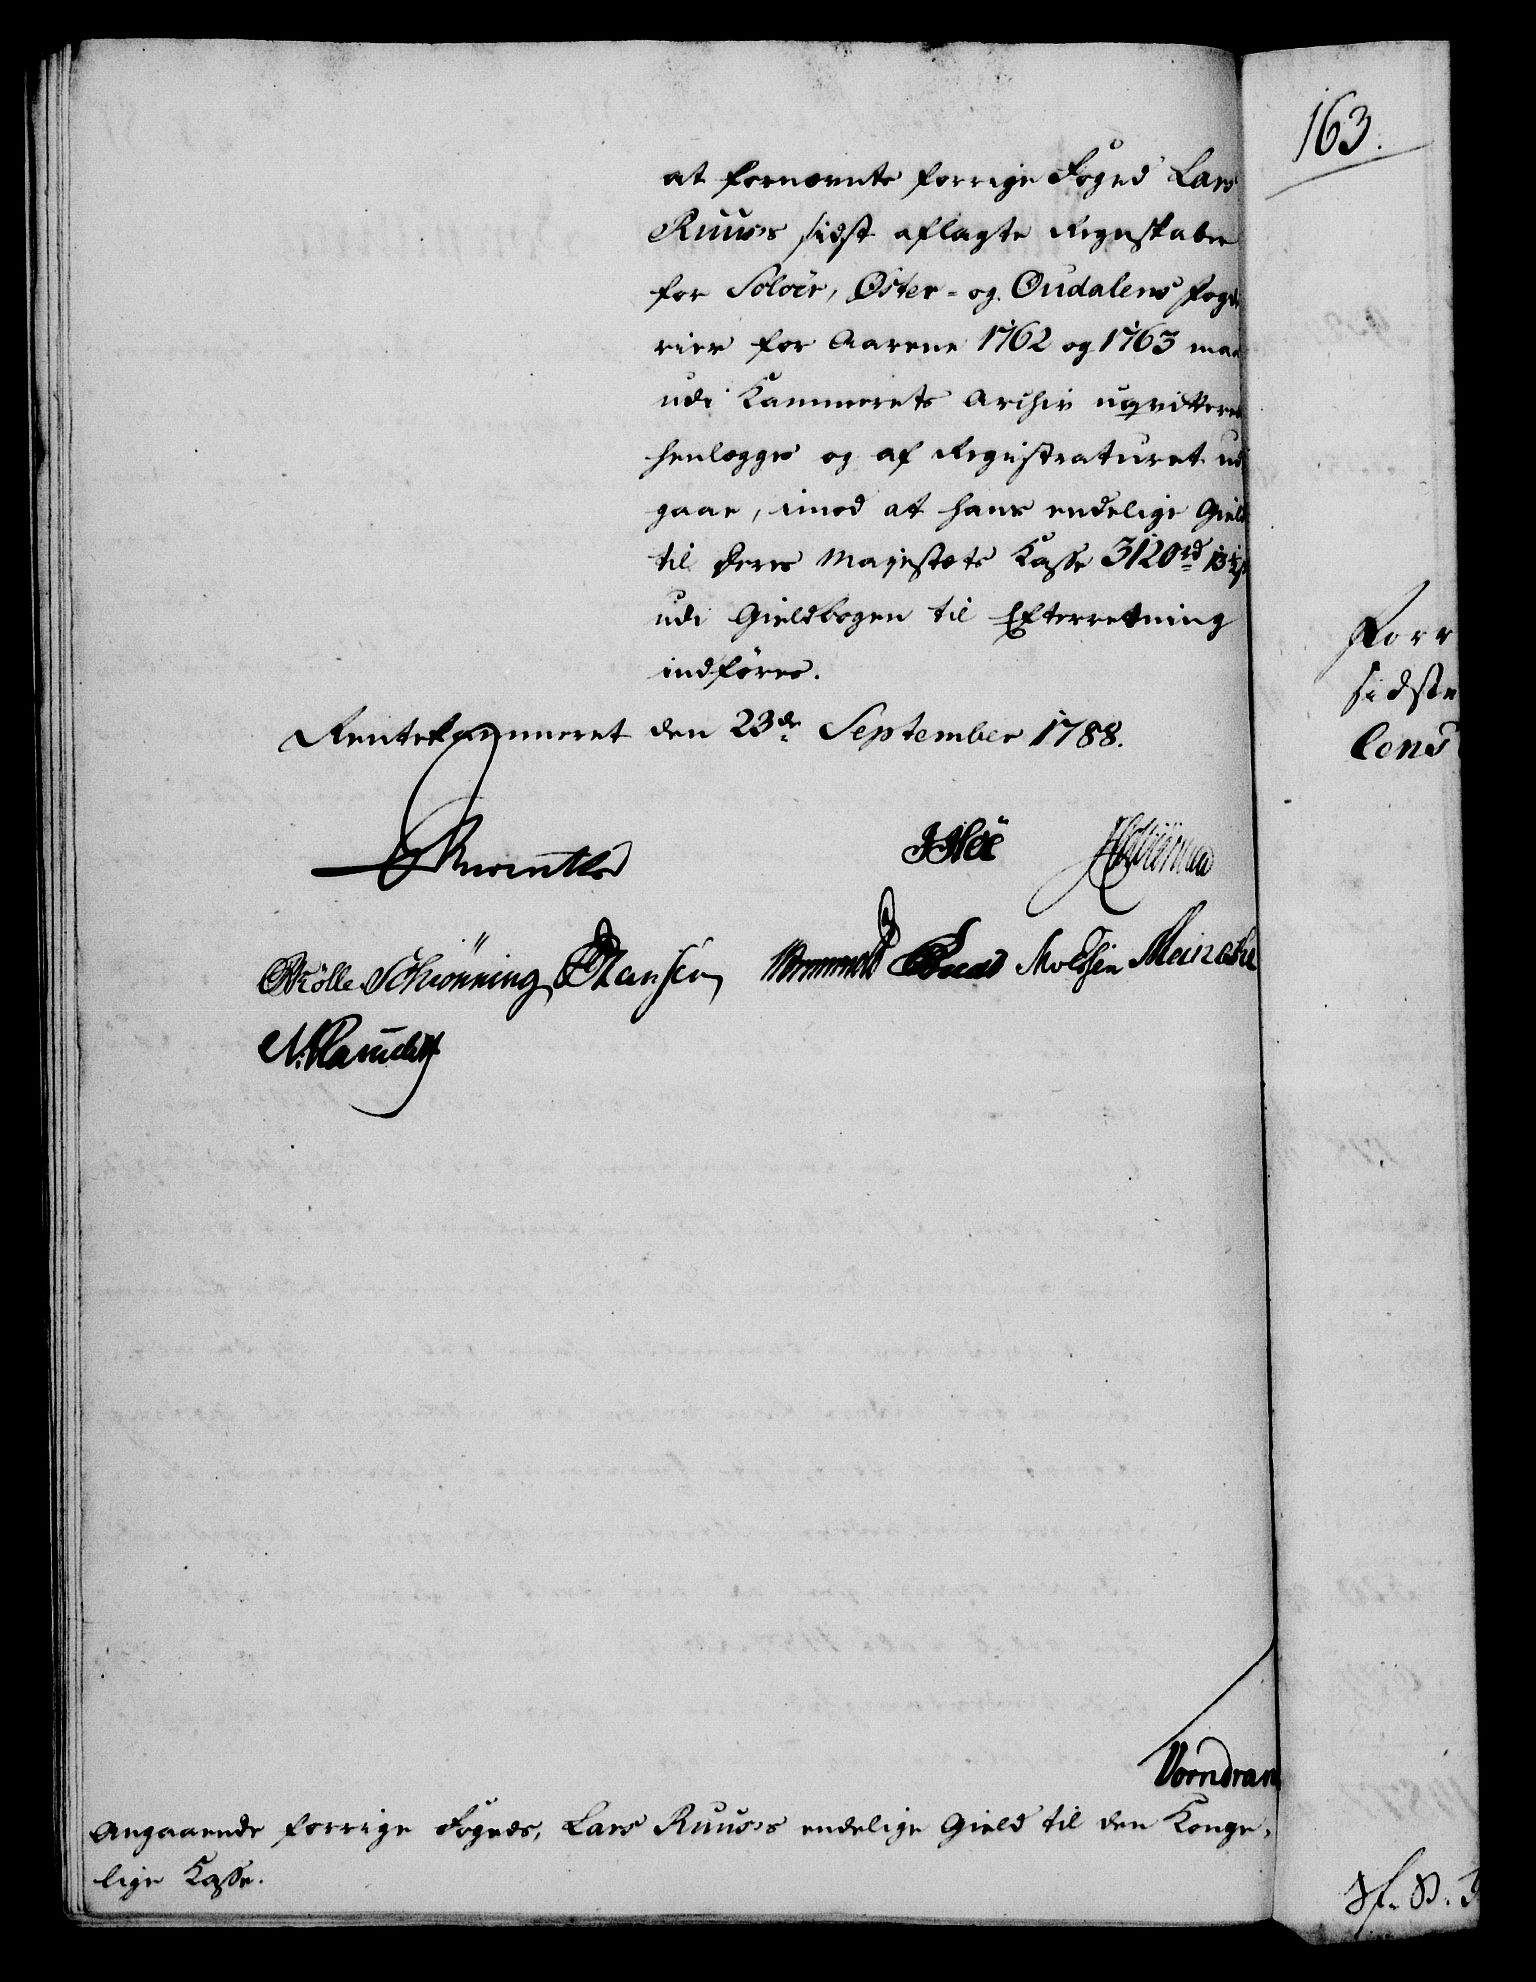 163.
at fornævnte forrige Foged Lars
Ruus's sidst aflagte Regnskaber
for Soløer, Øster- og Oudalens Fogde
rier for Aarene 1762 og 1763 maa
udi Kammerets Archiv uqvitteret
henlægges og af Registraturet ud
gaae, imod at hans endelige Gield
til Deres Majestæts Kasse 3120 rd 13½ s
udi Gieldbogen til Efterretning
indføres.
Rentekammeret den 23de September 1788.
Schiönning Hansen Meinche
Vorndran
Angaaende forrige Fogeds, Lars Ruus's endelige Gield til den Konge-
lige Kasse.
Forr
sidste